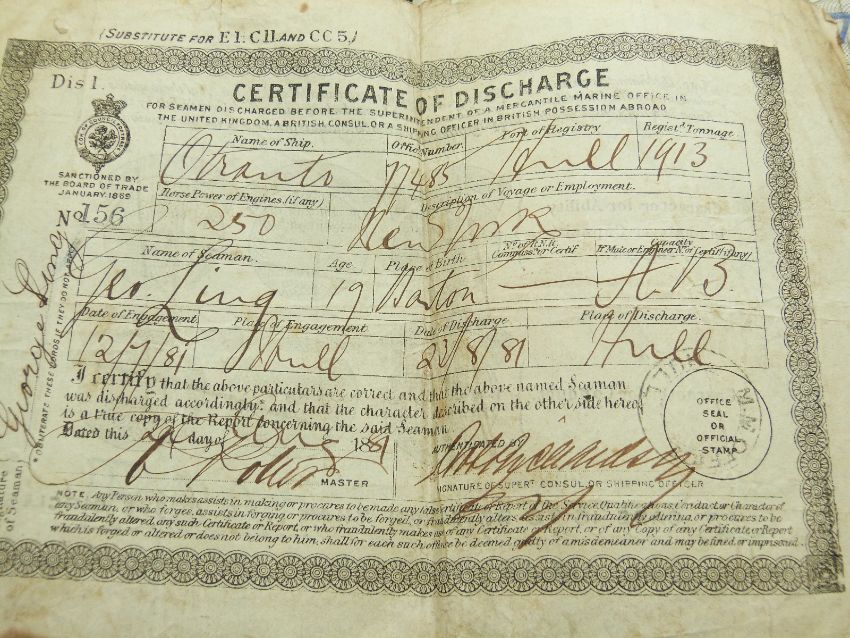 (SUBSTITUTE FOR E1. C11. AND CC5.)
Dis 1.
CERTIFICATE OF DISCHARGE
FOR SEAMEN DISCHARGED BEFORE THE SUPERINTENDENT OF A MERCANTILE MARINE OFFICE IN
THE UNITED KINGDOM, A BRITISH CONSUL, OR A SHIPPING OFFICER IN BRITISH POSSESSION ABROAD
SANCTIONED BY
THE BOARD OF TRADE
JANUARY 1869
No 156
Name of Ship. Offic. Number. Port of Registry Regist. Tonnage
Otranto 77485 Hull 1913
Horse Power of Engines (if any) Description of Voyage or Employment.
250 New York
Name of Seaman. Age Place of Birth No of R.N.R. Commissn. or Certif Capacity If Mate or Engineer No of Certif (if any)
Geo. Ling 19 Barton A B
Date of Engagement Place of Engagement Date of Discharge Place of Discharge.
12/7/81 Hull 23/8/81 Hull
I certify that the above particulars are correct and that the above named Seaman
was discharged accordingly, and that the character described on the other side hereof
is a true copy of the Report concerning the said Seaman
Dated this day of Aug 1881 AUTHENTICATED BY
MASTER SIGNATURE OF SUPERT CONSUL OR SHIPPING OFFICER
OFFICE
SEAL
OR
OFFICIAL
STAMP
NOTE. Any Person who makes assists in making or procures to be made any false Certificate or Report of the Service Qualifications Conduct or Character of
any Seaman, or who forges, assists in forging or procures to be forged, or fraudulently alters assists in fraudulently altering or procures to be
fraudulently altered, any such Certificate or Report, or who fraudulently makes use of any Certificate or Report, or of any Copy of any Certificate or Report
which is forged or altered or does not belong to him, shall for each such offence be deemed guilty of a misdemeanor and may be fined or imprisoned.
George Ling
* OBLITERATE THESE WORDS IF THEY DO NOT APPLY
of Seaman)